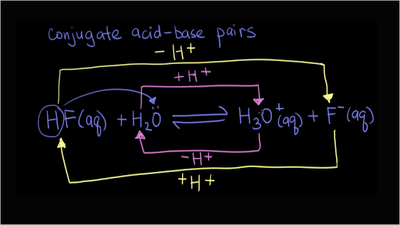 conjugate acid-base pairs
-H⁺
+H⁺
HF(aq) + H₂Ö ⇌ H₃O⁺(aq) + F⁻(aq)
-H⁺
+H⁺